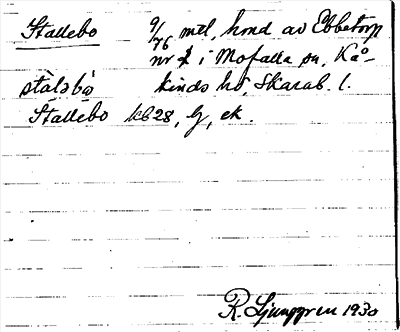 Stallebo 9/76 mtl, hmd av Ebbetorp
nr 1 i Mofalla sn, Kå-
stàləbω kinds hd, Skarab. l.
Stallebo kb 28, G, ek.
R. Ljunggren 1930